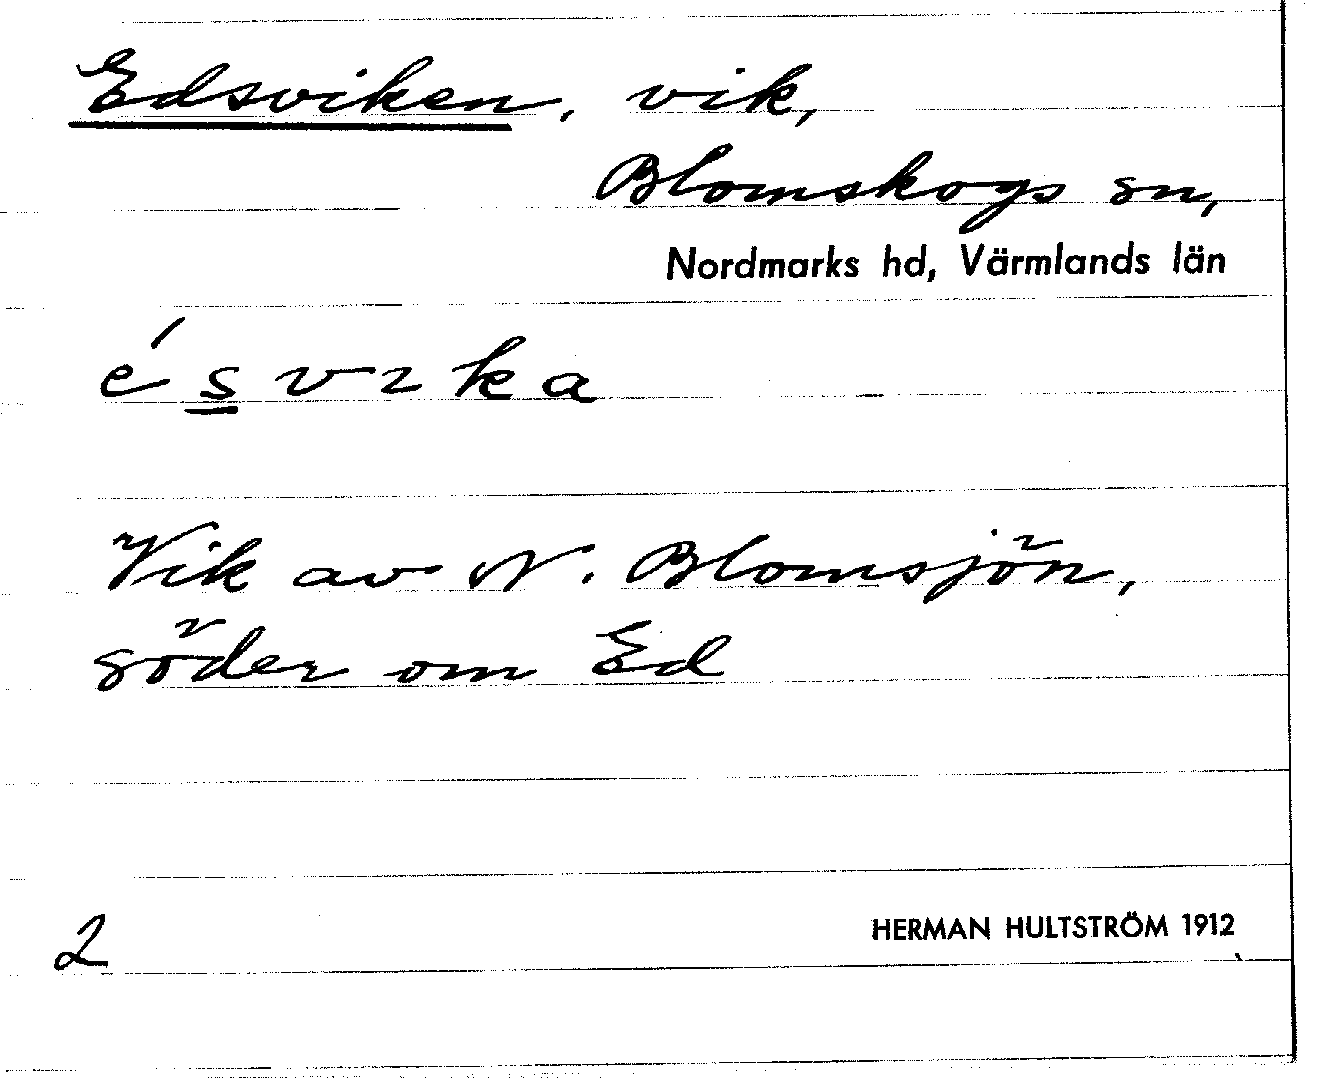 Edsviken, vik,
Blomskogs sn,
Nordmarks hd, Värmlands län
é s v ı k a
Vik av N. Blomsjön,
söder om Ed
2
HERMAN HULTSTRÖM 1912